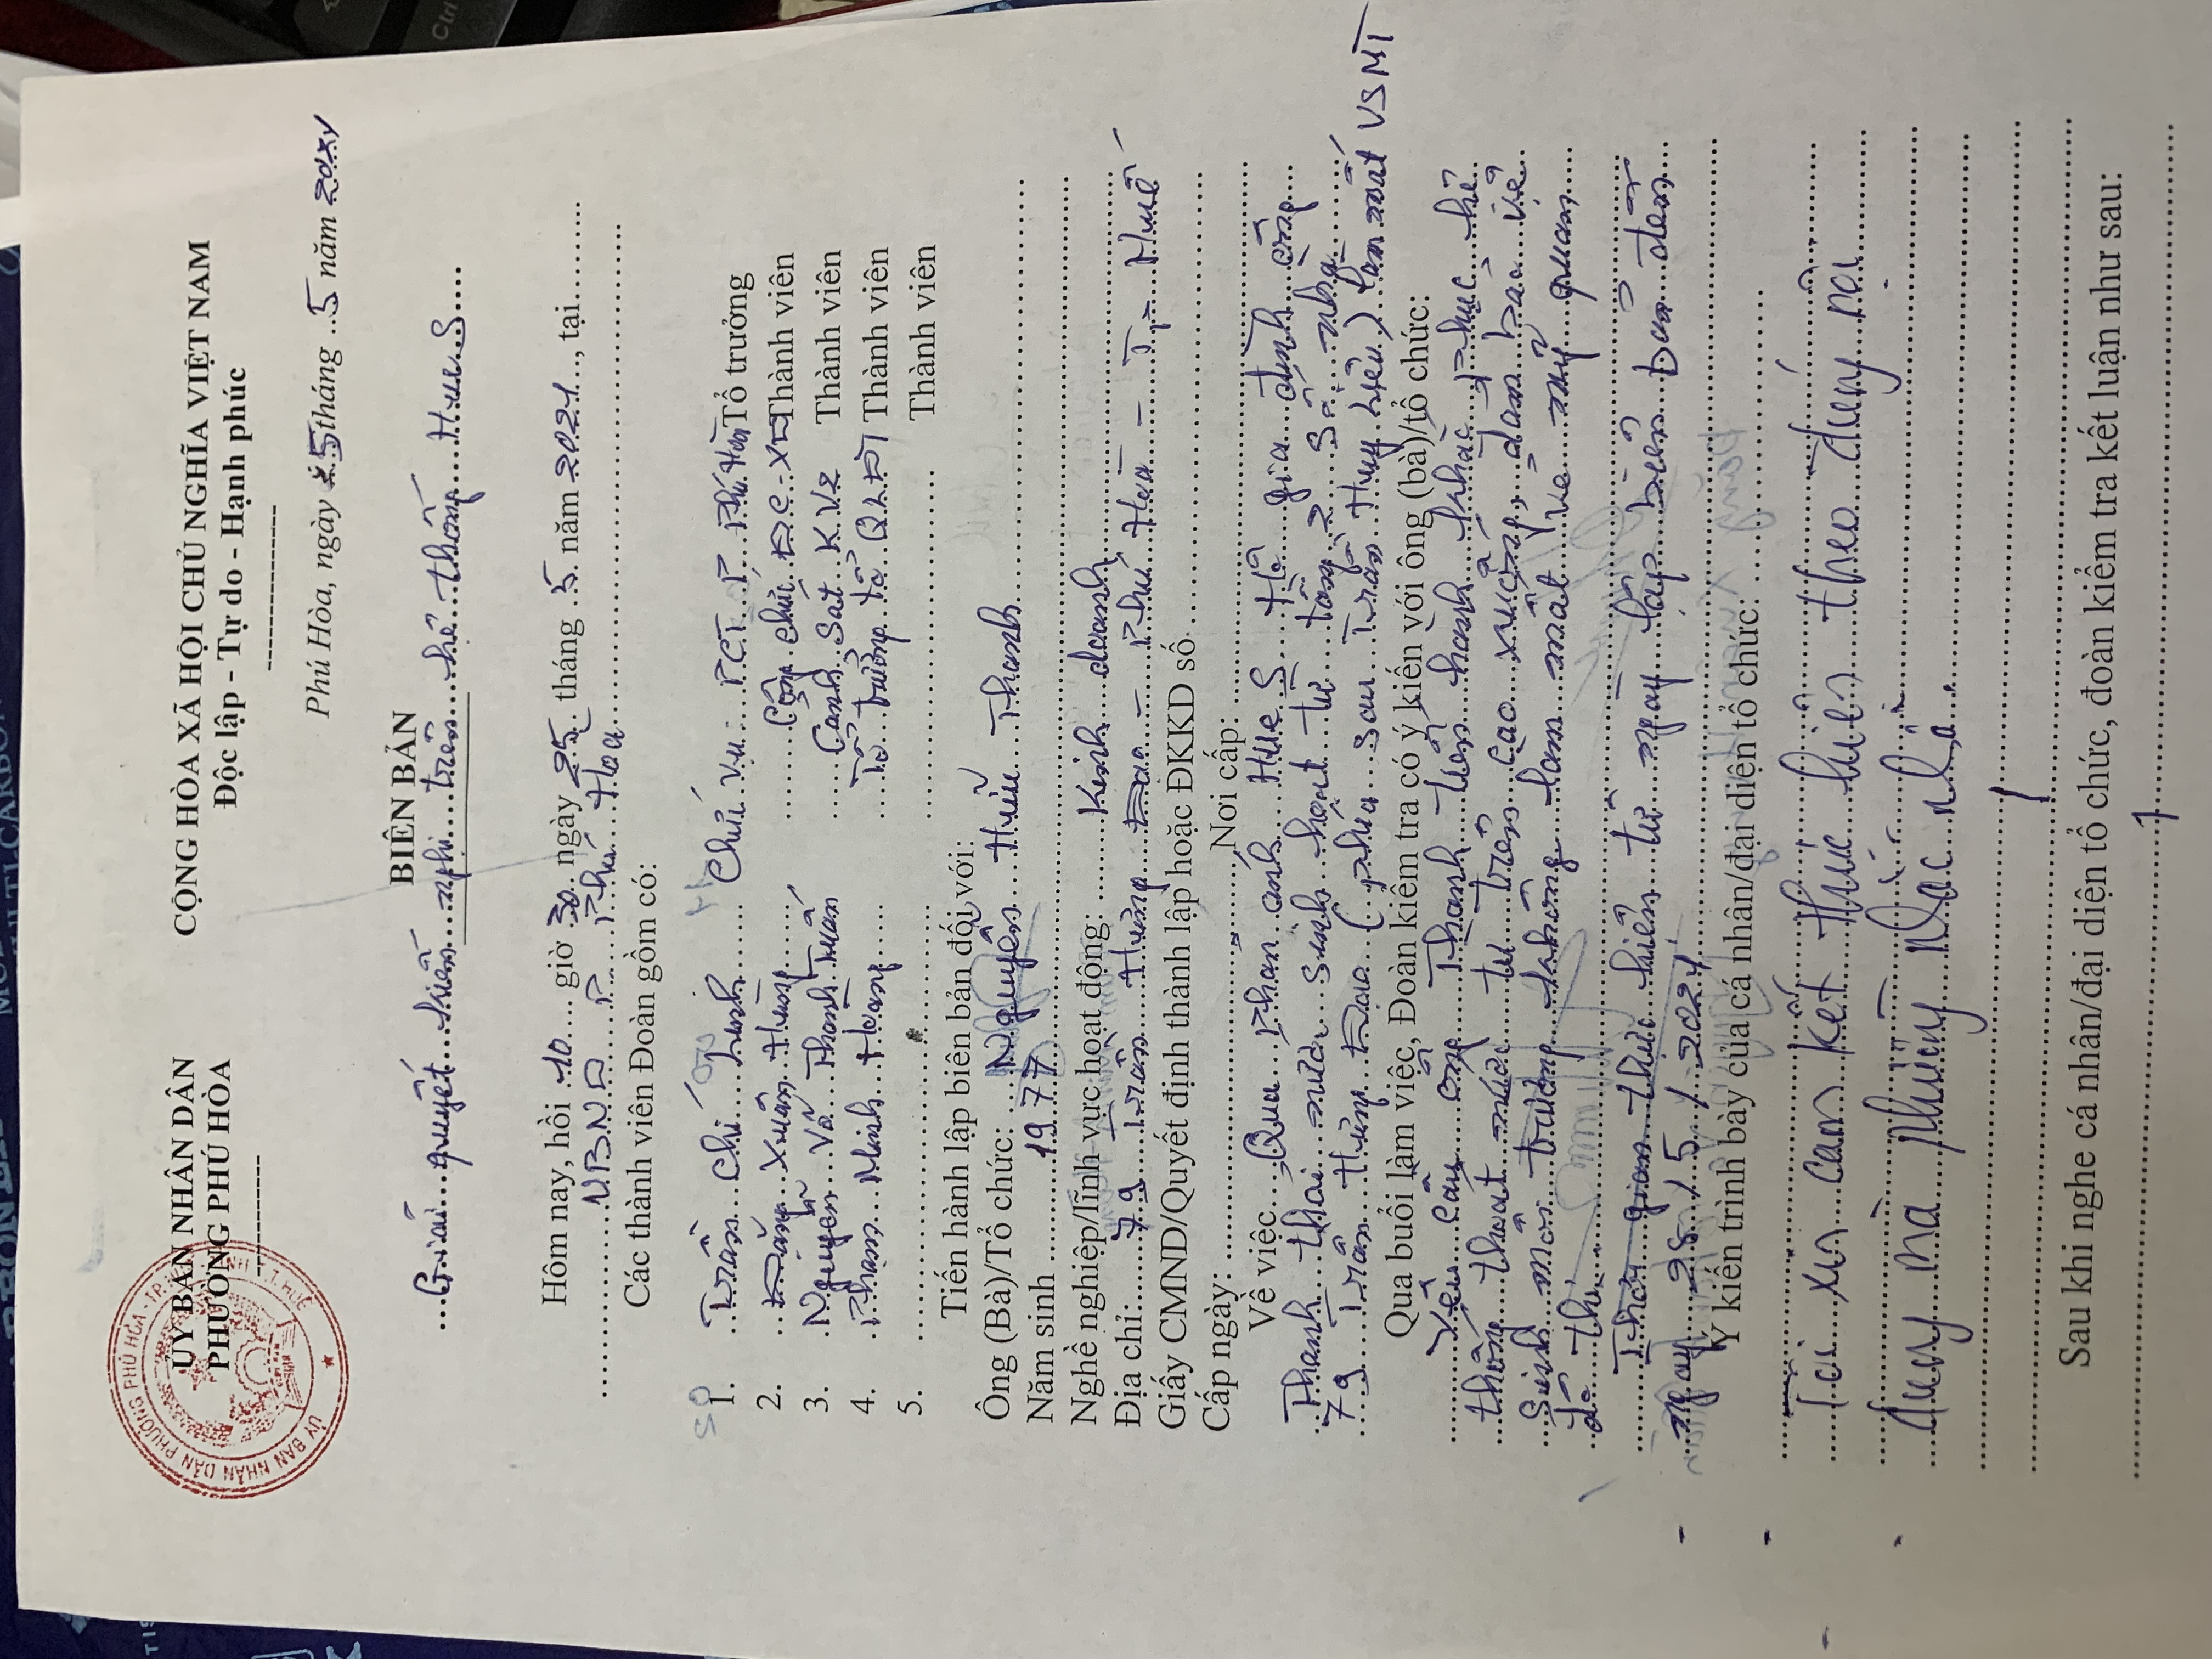 ỦY BAN NHÂN DÂN
PHƯỜNG PHÚ HÒA
CỘNG HÒA XÃ HỘI CHỦ NGHĨA VIỆT NAM
Độc lập - Tự do - Hạnh phúc
Phú Hòa, ngày 25 tháng 5 năm 2021
BIÊN BẢN
Giải quyết kiến nghị trên hệ thống Hue S
Hôm nay, hồi 10 giờ 30 ngày 25 tháng 5 năm 2021, tại
UBND P. Phú Hòa
Các thành viên Đoàn gồm có:
1. Trần Chí Linh Chức vụ: PCT P. Phú Hòa Tổ trưởng
2. Đặng Xuân Hùng Công chức ĐC-XD Thành viên
3. Nguyễn Võ Thanh Tuấn Cảnh Sát KV2 Thành viên
4. Phạm Minh Hoàng Tổ trưởng tổ QLĐT Thành viên
5. Thành viên
Tiến hành lập biên bản đối với:
Ông (Bà)/Tổ chức: Nguyễn Hữu Thanh
Năm sinh 1977
Nghề nghiệp/lĩnh vực hoạt động: Kinh doanh
Địa chỉ: 79 Trần Hưng Đạo - Phú Hòa - Tp Huế
Giấy CMND/Quyết định thành lập hoặc ĐKKD số
Cấp ngày: Nơi cấp:
Về việc Qua phản ánh Hue S hộ gia đình ông
Thanh thải nước sinh hoạt từ tầng 2 số nhà
79 Trần Hưng Đạo (phía sau Trần Huy Liệu) làm mất VSMT
Qua buổi làm việc, Đoàn kiểm tra có ý kiến với ông (bà)/tổ chức:
Yêu cầu ông Thanh tiến hành khắc phục hệ
thống thoát nước từ trên cao xuống, đảm bảo vệ
sinh môi trường không làm mất vẻ mỹ quan
đô thị.
Thời gian thực hiện từ ngày lập biên bản đến
ngày 28/5/2021
Ý kiến trình bày của cá nhân/đại diện tổ chức:
Tôi xin cam kết thực hiện theo đúng nội
dung mà phường nhắc nhở.
Sau khi nghe cá nhân/đại diện tổ chức, đoàn kiểm tra kết luận như sau: